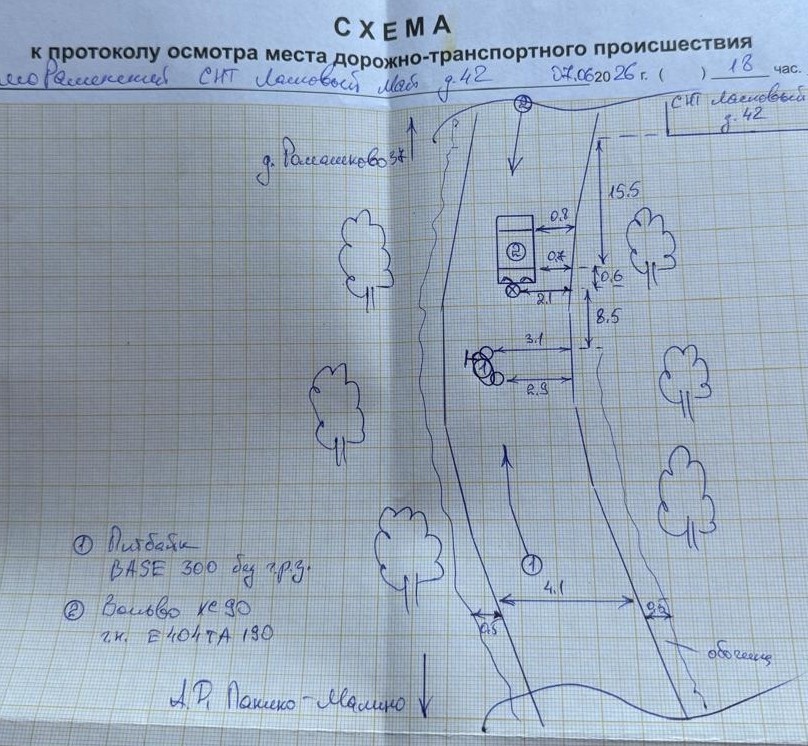 СХЕМА
к протоколу осмотра места дорожно-транспортного происшествия
СНТ Ласковый Май д.42 07.06 2026 г. ( ) 18 час.
СНТ Ласковый
д.42
2
д. Ромашково 37
15.5
0,8
2
0,7
0,6
2.1
8.5
3.1
1
2,9
1
4.1
0,5
0,5
обочина
1 Питбайк
BASE 300 без г.р.з.
2 Вольво ХС90
г.н. Е404ТА 190